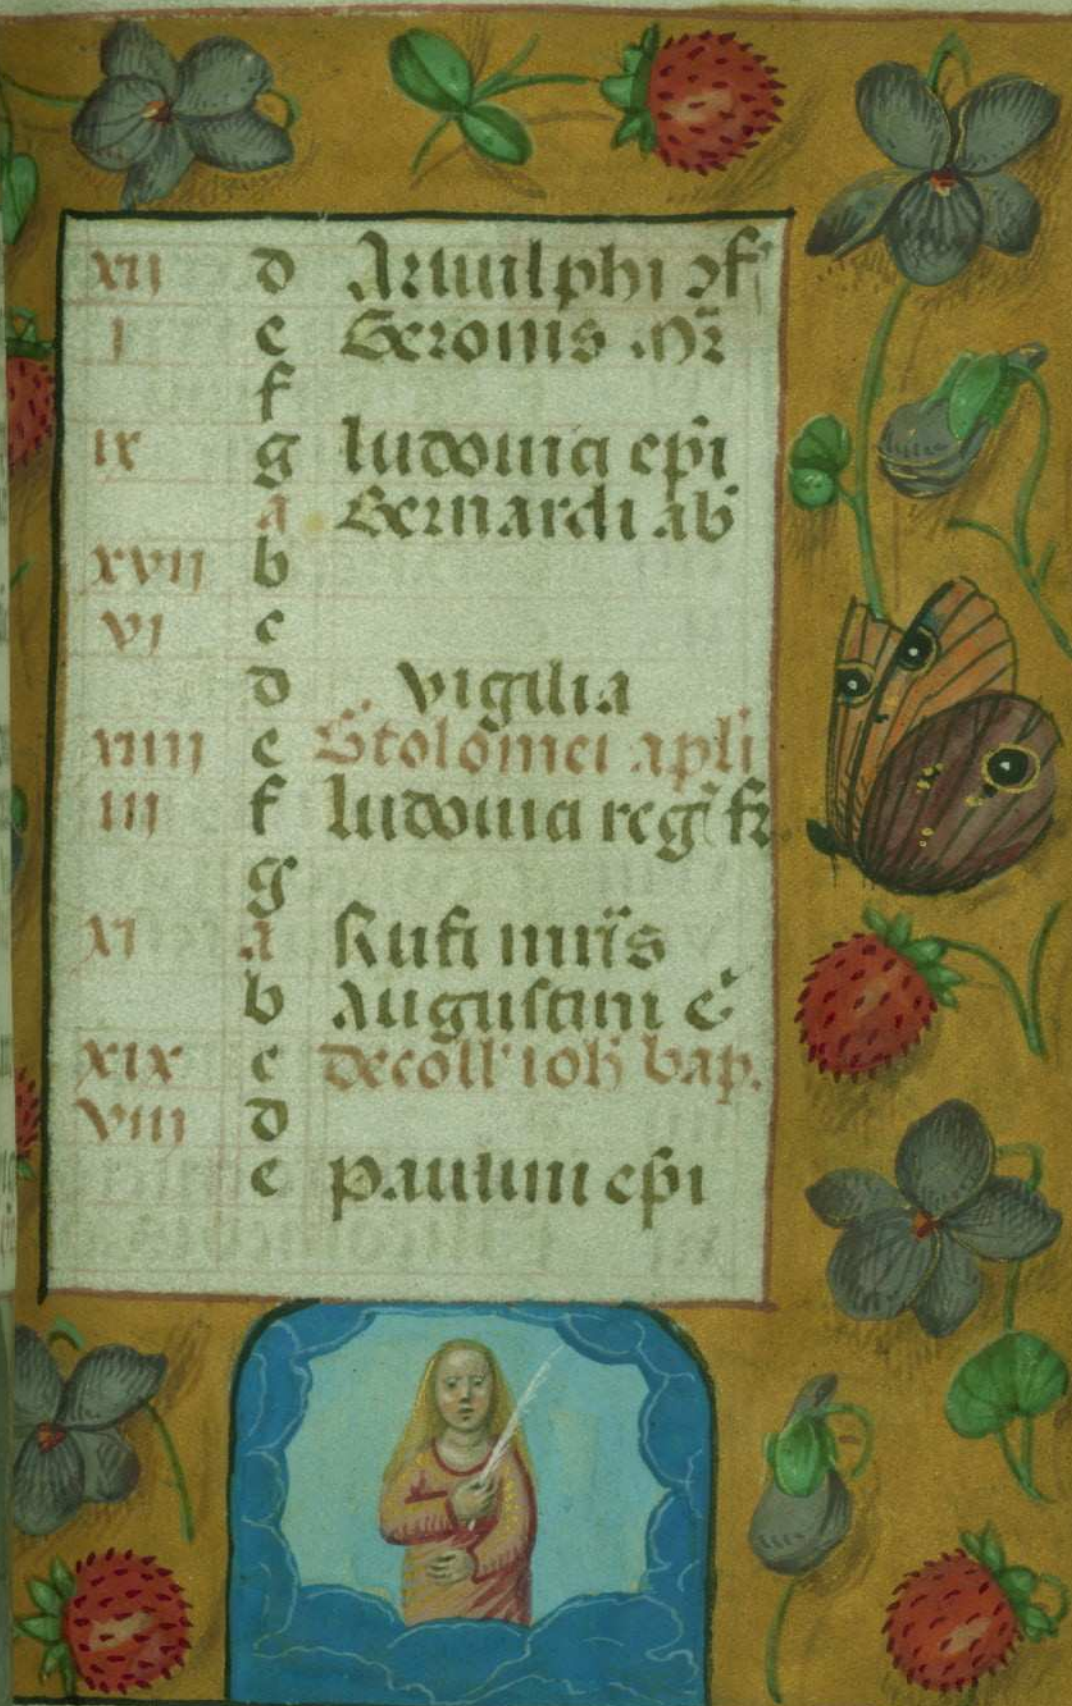 xii d Arnulphi ꝯf
i e Geronis mr̄
f
ix g ludouici ep̄i
a Bernardi ab
xvii b
vi c
d vigilia
xiiii e Btolomei apli
iii f ludouici reg fr
g
xi a Rufi mr̄is
b Augustini e
xix c decoll' ioh bap.
viii d
e paulini ep̄i